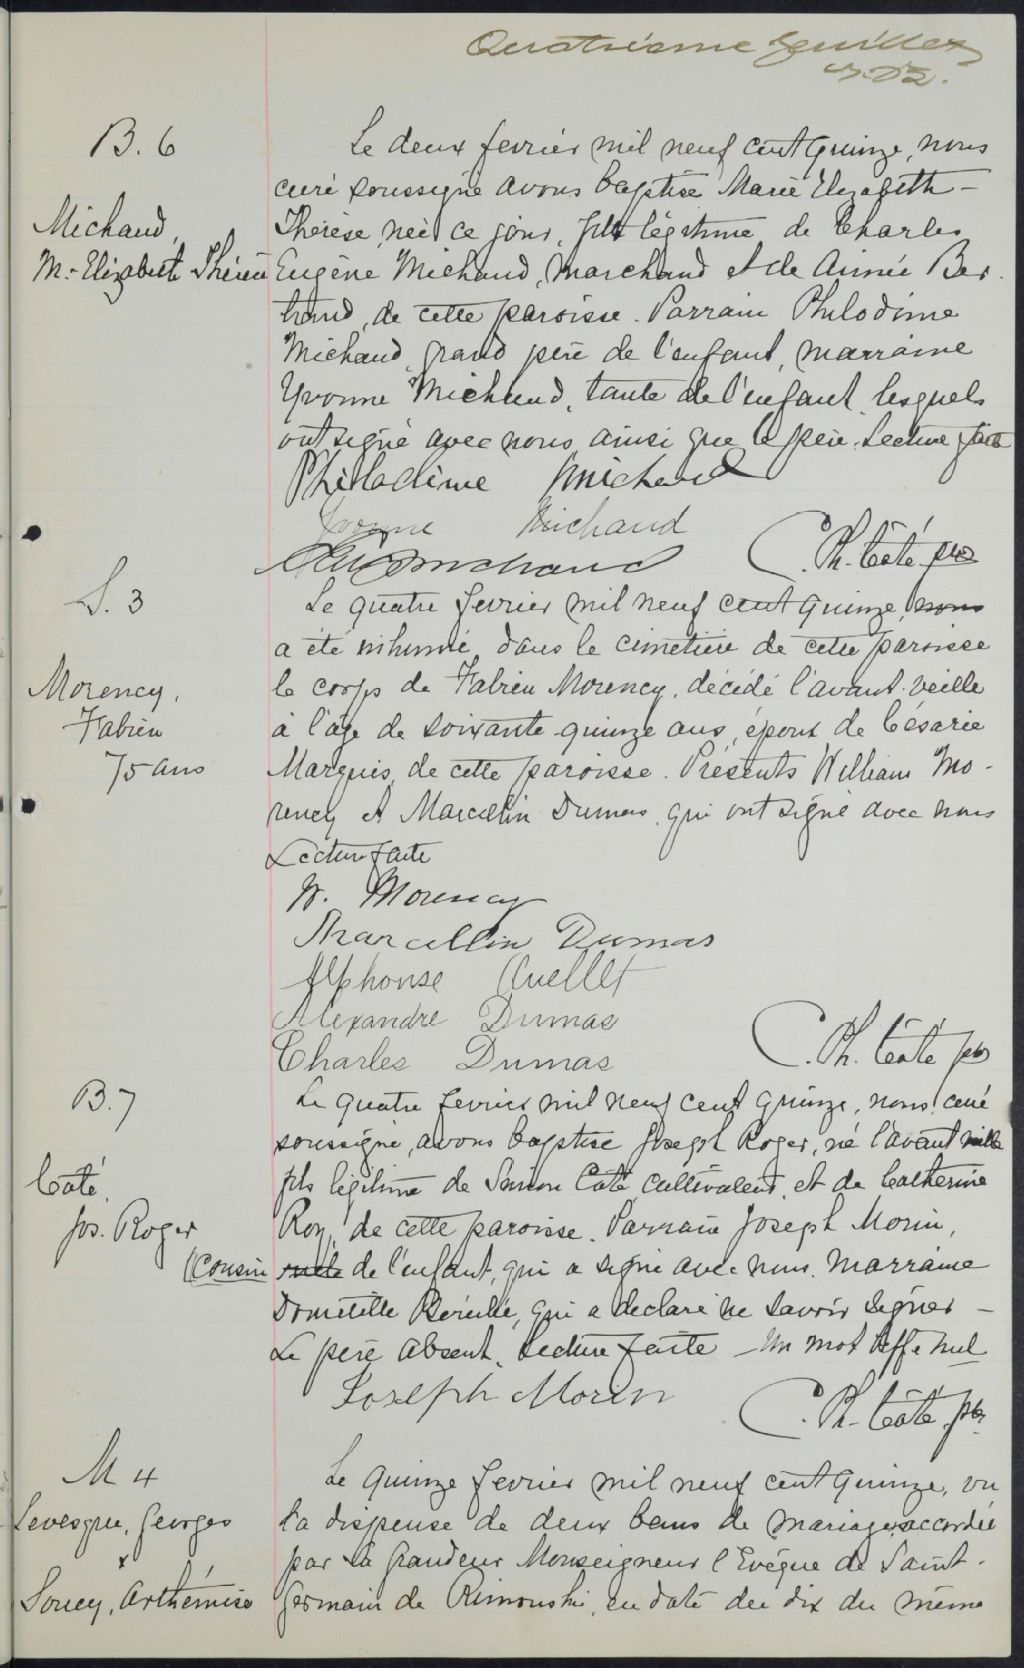 Quatrième feuillet
B. 6
Le deux fevrier mil neuf cent quinze, nous
curé soussigné avons baptisé Marie Elizabeth-
Michaud,
M.-Elizabeth Thérèse
Thérèse née ce jour, fille légitime de Charles
Eugène Michaud, marchand et de Aimée Ber-
trand, de cette paroisse. Parrain Philodime
Michaud, grand père de l'enfant, marraine
Yvonne Michaud, tante de l'enfant lesquels
ont signé avec nous ainsi que le père. Lecture faite
Philadime Michaud
Yvonne Michaud
Michaud C. Ph. Côté ptr
S. 3
Le quatre fevrier mil neuf cent quinze, nous
a été inhumé dans le cimetière de cette paroisse
Morency,
Fabien
75 ans
le corps de Fabien Morency, décédé l'avant-veille
à l'âge de soixante-quinze ans, époux de Césarie
Marquis, de cette paroisse. Présents William Mo-
rency et Marcellin Dumas qui ont signé avec nous
Lecture faite
W. Morency
Marcellin Dumas
Alphonse Ouellet
Alexandre Dumas
Charles Dumas C. Ph. Côté ptr
B. 7
Le quatre fevrier mil neuf cent quinze, nous, curé
soussigné, avons baptisé Joseph Roger, né l'avant veille
Côté,
Jos. Roger
fils légitime de Simon Côté cultivateur, et de Catherine
Roy, de cette paroisse. Parrain Joseph Morin,
(cousin de l'enfant, qui a signé avec nous. Marraine
Dometille Bérubé, qui a déclaré ne savoir signer -
Le père absent. Lecture faite - Un mot biffé nul
Joseph Morin C. Ph. Côté, ptr.
M 4
Levesque, Georges
x
Soucy, Arthémise
Le quinze fevrier mil neuf cent quinze, vu
la dispense de deux bans de mariage accordée
par Sa Grandeur Monseigneur l'Evêque de Saint-
Germain de Rimouski, en date du dix du même